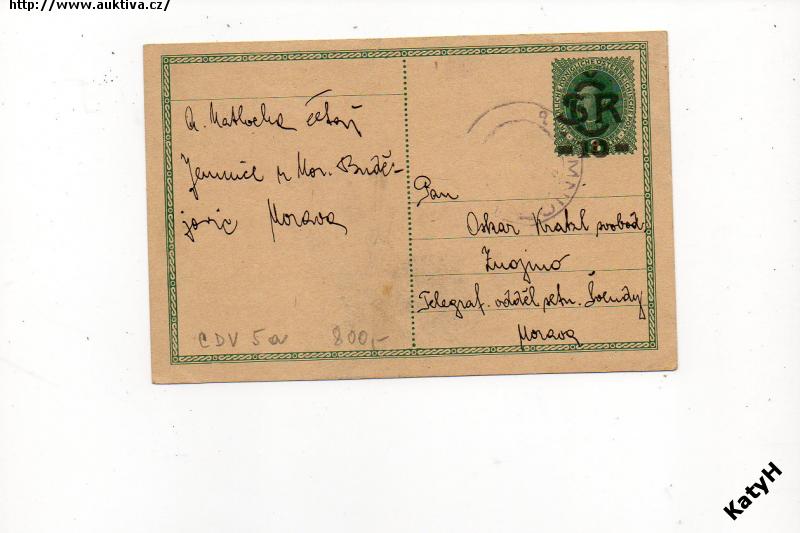 http://www.auktiva.cz/
ČSR
-10-
A. Matlocha četař
Jemnice u Mor. Budě-
jovic Morava
Pan
Oskar Kratzl svobod.
Znojmo
Telegraf. odděl setn.
Morava
CDV 5a 800,-
KatyH